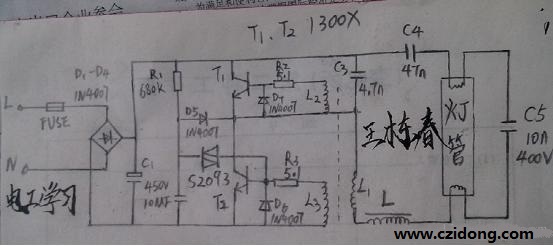 T₁、T₂ 1300X
D₁-D₄
1N4007
L
FUSE
N
电工学习
C₁
450V
10MF
R₁
680K
D5
1N4007
S2093
T₁
T₂
R2
5.1
D7
1N4007
L2
R3
5.1
D6
1N4007
L3
C3
4.7n
C4
47n
L₁
L
王栋春
灯管
C5
10n
400V
www.czidong.com